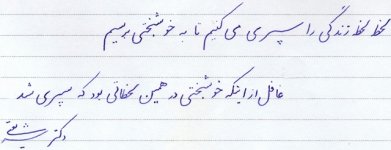 لحظه لحظه زندگی را سپری می کنیم تا به خوشبختی برسیم
غافل از اینکه خوشبختی در همین لحظاتی بود که سپری شد
دکتر شریعتی